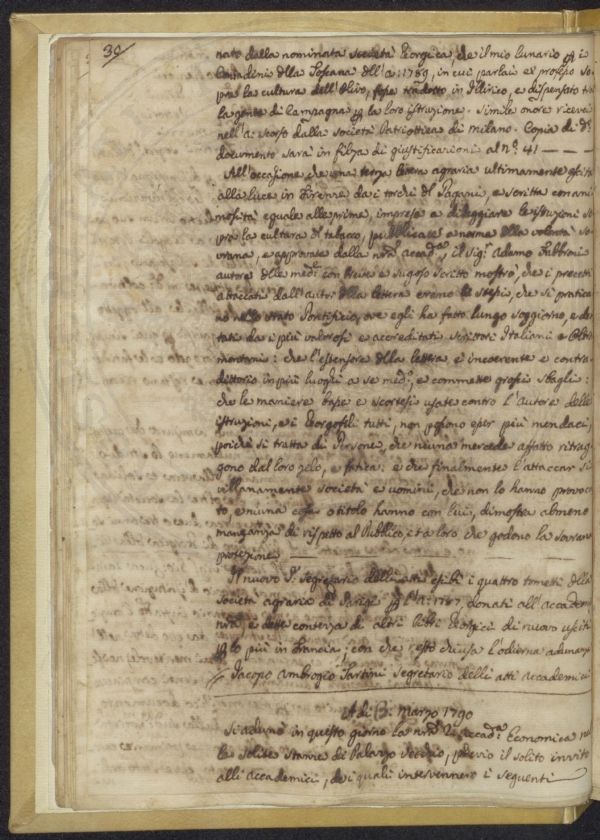 30
nato dalla nominata società Georgica, che il mio lunario p i
Contadini della Toscana dell'a: 1789, in cui parlai ex professo so
pra la cultura dell'Olivo, fosse tradotto in Illirico, e dispensato tra
la gente di Campagna p la loro istruzione. Simile onore ricevei
nell'a: scorso dalla società Patriottica di Milano. Copia di d.º
documento sarà in filza di giustificazioni al n.º 41 — — —
All'occasione che una terza lettera agraria ultimamente escita
alla luce in Firenze da i torchi del Pagani, e scritta con ani
mosità eguale alle prime, imprese a dileggiare le istruzioni so
pra la cultura del tabacco, pubblicate a norma della volontà so
vrana, e approvate dalla nrã accad.ª, il sig.r Adamo Fabbroni
autore delle med.e con breve e sugoso scritto mostrò, che i precetti
attaccati dall'autore della lettera erano li stessi, che si pratica
no nello stato Pontificio, ove egli ha fatto lungo soggiorno, e det
tati da i più valorosi e accreditati scrittori Italiani e Oltra
montani: che l'estensore della lettera è incoerente e contra
dittorio in più luoghi a se med.º, e commette grossi sbagli:
che le maniere basse e scortesi usate contro l'autore delle
istruzioni, e i Georgofili tutti, non possono esser più mendaci,
poichè si tratta di Persone, che niuna mercede affatto ritrag
gono dal loro zelo, e fatica: e che finalmente l'attaccar sì
villanamente società e uomini, che non lo hanno provoca
to, e niuna cosa o titolo hanno con lui, dimostra almeno
mancanza di rispetto al Pubblico, et a loro che godono la sovrana
protezione
Il nuovo S.r segretario delli atti esibì i quattro tometti della
società agraria di Parigi p l'a: 1787, donati all'accadem
nrã, e dette contezza di altri libri Georgici di nuovo usciti
p lo più in Francia; con che restò chiusa l'odierna adunanza
Jacopo Ambrogio Tartini segretario delli atti accademici
A dì 3: Marzo 1790
Si adunò in questo giorno la nrã R. Accad.ª Economica nel
le solite stanze di Palazzo Vecchio, previo il solito invito
alli accademici, de i quali intervennero i seguenti